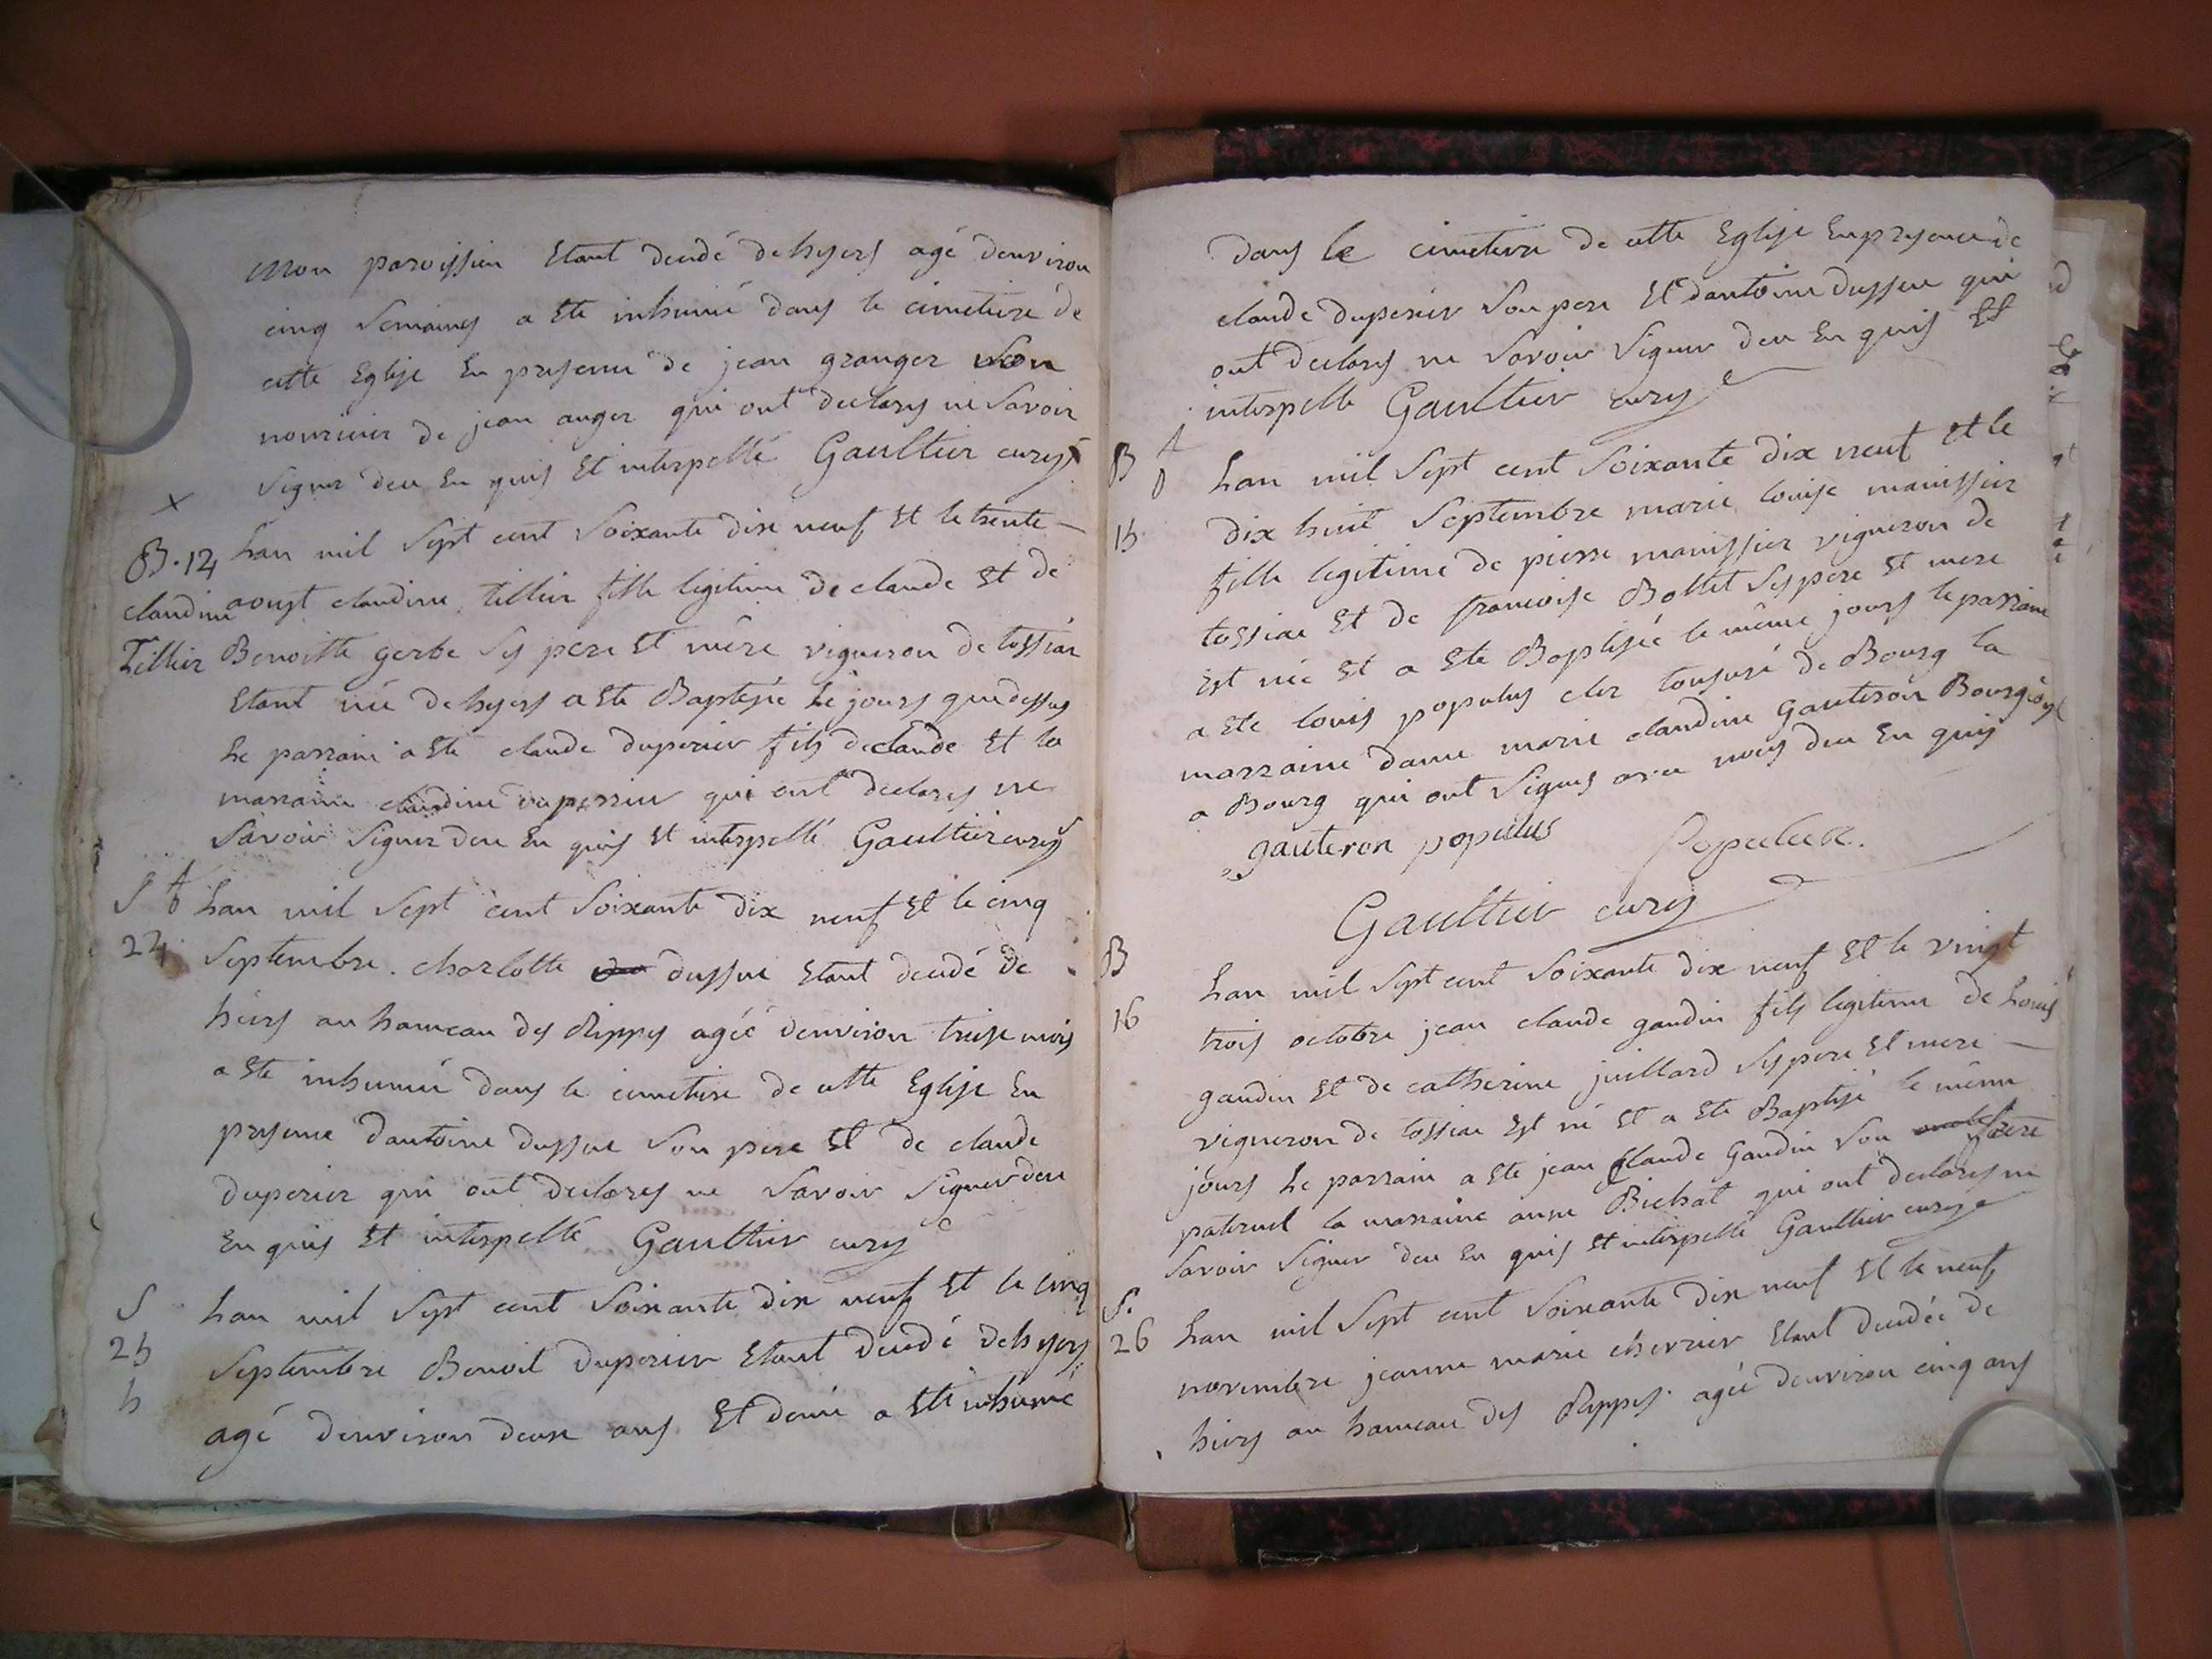 mon paroissien Etant decedé dehyers agé denviron
cinq semaines a Ete inhumé dans le cimetiere de
cette Eglise En presence de jean granger son
nouricier de jean auger qui ont declarés ne savoir
signer deu En quis Et interpellé Gaultier curé
x
B. 14 Lan mil sept cent soixante dix neuf Et le trente
claudine aoust claudine tillier fille legitime de claude Et de
Tillier Benoitte gerbe ses pere Et mére vigneron de tossiat
Etant née dehyers a Ete Baptisée le jours que dessus
Le parrain a Ete claude duperier fils de claude Et la
marraine claudine duperrier qui ont declarés ne
savoir signer deu En quis Et interpellé Gaultier curé
S Lan mil sept cent soixante dix neuf Et le cinq
24 septembre. charlotte dussue Etant decedé de
hiers au hameau des Rippes agéé denviron treise mois
a Ete inhumée dans le cimetiere de cette Eglise En
presence dantoine dussue son pere Et de claude
duperier qui ont declarés ne savoir signer deu
En quis Et interpellé Gaultier curé
S Lan mil sept cent soixante dix neuf Et le cinq
25 septembre Benoit duperier Etant decedé dehyers
h agé denviron deux ans Et demi a Ete inhumé
dans le cimetiere de cette Eglise En presence de
claude duperier son pere Et dantoine dussue qui
ont declarés ne savoir signer deu En quis Et
interpellé Gaultier curé
B Lan mil sept cent soixante dix neuf Et le
15 dix huit septembre marie louise manissier
fille legitime de pierre manissier vigneron de
tossiat Et de francoise Bollet ses pere Et mere
Est née Et a Ete Baptisée le même jours le parrain
a Ete louis populus cler tonsuré de Bourg la
marraine dame marie claudine gauteron Bourgeoyse
a Bourg qui ont signés avec nous deu En quis
gauteron populus Populus.
Gaultier curé
B Lan mil sept cent soixante dix neuf Et le vingt
16 trois octobre jean claude gaudin fils legitime de Louis
gaudin Et de catherine juillard ses pere Et mere
vigneron de tossiat Est né Et a Ete Baptisé le même
jours Le parrain a Ete jean claude gaudin son oncle frere
paternel la marraine anne Bichat qui ont declarés ne
savoir signer deu En quis Et interpellé Gaultier curé
S. Lan mil sept cent soixante dix neuf Et le neuf
26 novembre jeanne marie chevrier Etant decedée de
hiers au hameau des Rippes. agée denviron cinq ans